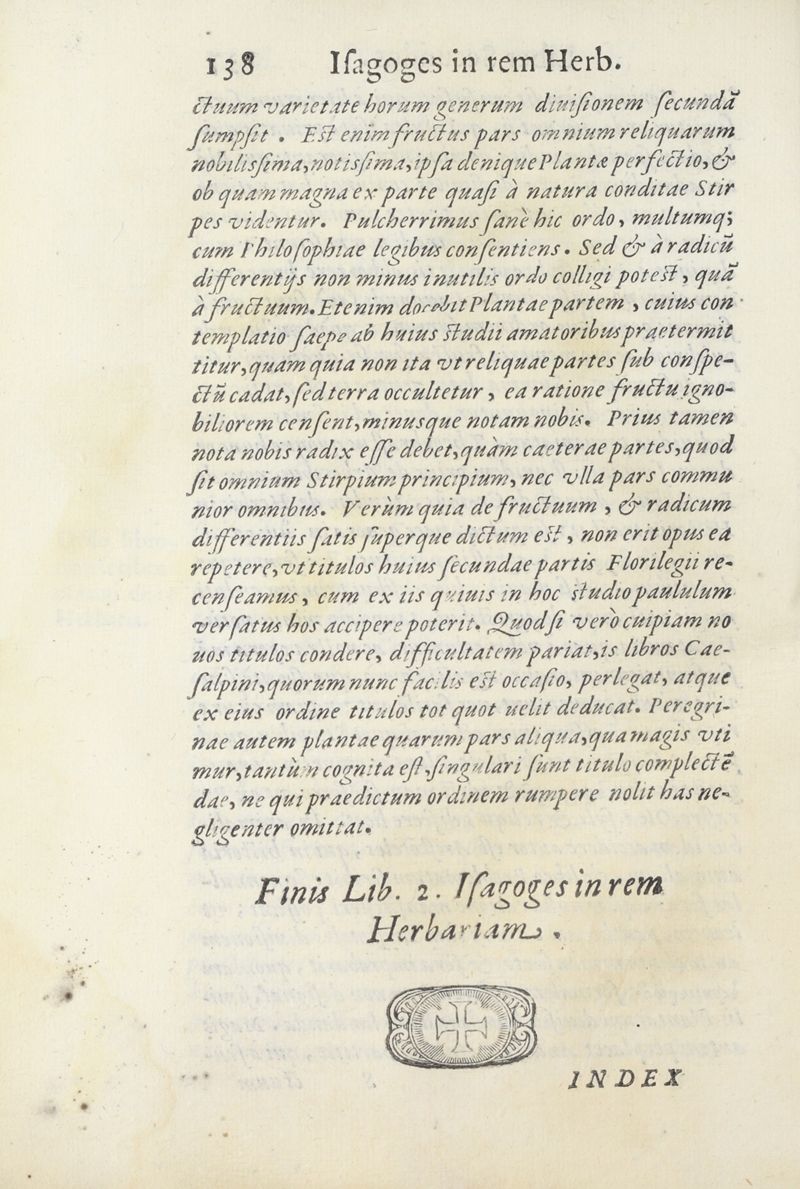 138 Iſagoges in rem Herb.
ctuum varietate horum generum diuiſionem ſecundã
ſumpſit . Eſt enim fructus pars omnium reliquarum
nobiliſſima, notiſſima, ipſa denique Plantæ perfectio, &
ob quam magna ex parte quaſi à natura conditae Stir
pes videntur. Pulcherrimus ſanè hic ordo, multumq;
cum Philoſophiae legibus conſentiens. Sed & à radicũ
differentijs non minus inutilis ordo colligi poteſt, quã
à fructuum. Etenim docebit Plantae partem , cuius con
templatio ſaepe ab huius ſtudii amatoribus praetermit
titur, quam quia non ita vt reliquae partes ſub conſpe-
ctũ cadat, ſed terra occultetur , ea ratione fructu igno-
biliorem cenſent, minusque notam nobis. Prius tamen
nota nobis radix eſſe debet, quàm caeterae partes, quod
ſit omnium Stirpium principium, nec vlla pars commu
nior omnibus. Verùm quia de fructuum , & radicum
differentiis ſatis ſuperque dictum eſt, non erit opus ea
repetere, vt titulos huius ſecundae partis Florilegii re-
cenſeamus, cum ex iis quiuis in hoc ſtudio paululum
verſatus hos accipere poterit. Quodſi verò cuipiam no
uos titulos condere, difficultatem pariat, is libros Cae-
ſalpini, quorum nunc facilis eſt occaſio, perlegat, atque
ex eius ordine titulos tot quot uelit deducat. Peregri-
nae autem plantae quarum pars aliqua, qua magis vti
mur, tantùm cognita eſt, ſingulari ſunt titulo complectẽ
dae, ne qui praedictum ordinem rumpere nolit has ne-
gligenter omittat.
Finis Lib. 2. Iſagoges in rem
Herbariam .
INDEX